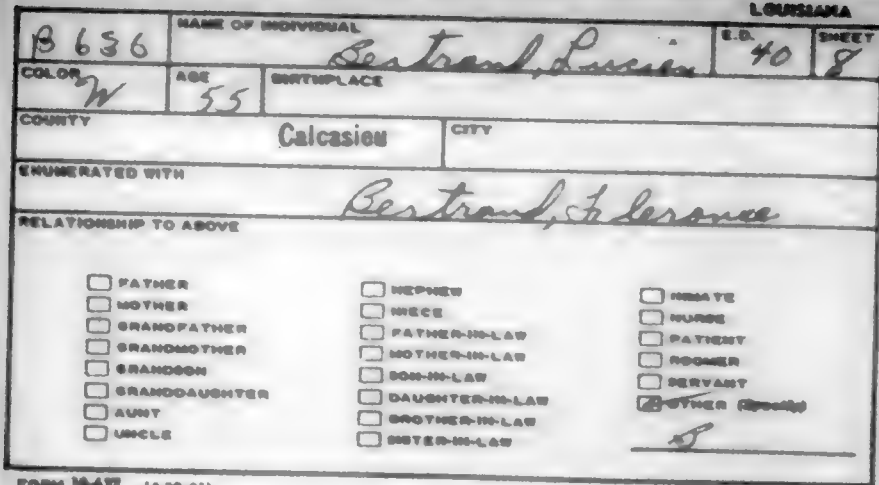 LOUISIANA
B 636 NAME OF INDIVIDUAL Bertrand, Lucien E.D. 40 SHEET 8
COLOR W AGE 55 BIRTHPLACE
COUNTY Calcasieu CITY
ENUMERATED WITH
Bertrand,
RELATIONSHIP TO ABOVE
FATHER
MOTHER
GRANDFATHER
GRANDMOTHER
GRANDSON
GRANDDAUGHTER
AUNT
UNCLE
NEPHEW
NIECE
FATHER-IN-LAW
MOTHER-IN-LAW
SON-IN-LAW
DAUGHTER-IN-LAW
BROTHER-IN-LAW
SISTER-IN-LAW
INMATE
NURSE
PATIENT
ROOMER
SERVANT
OTHER (Specify)
B
FORM